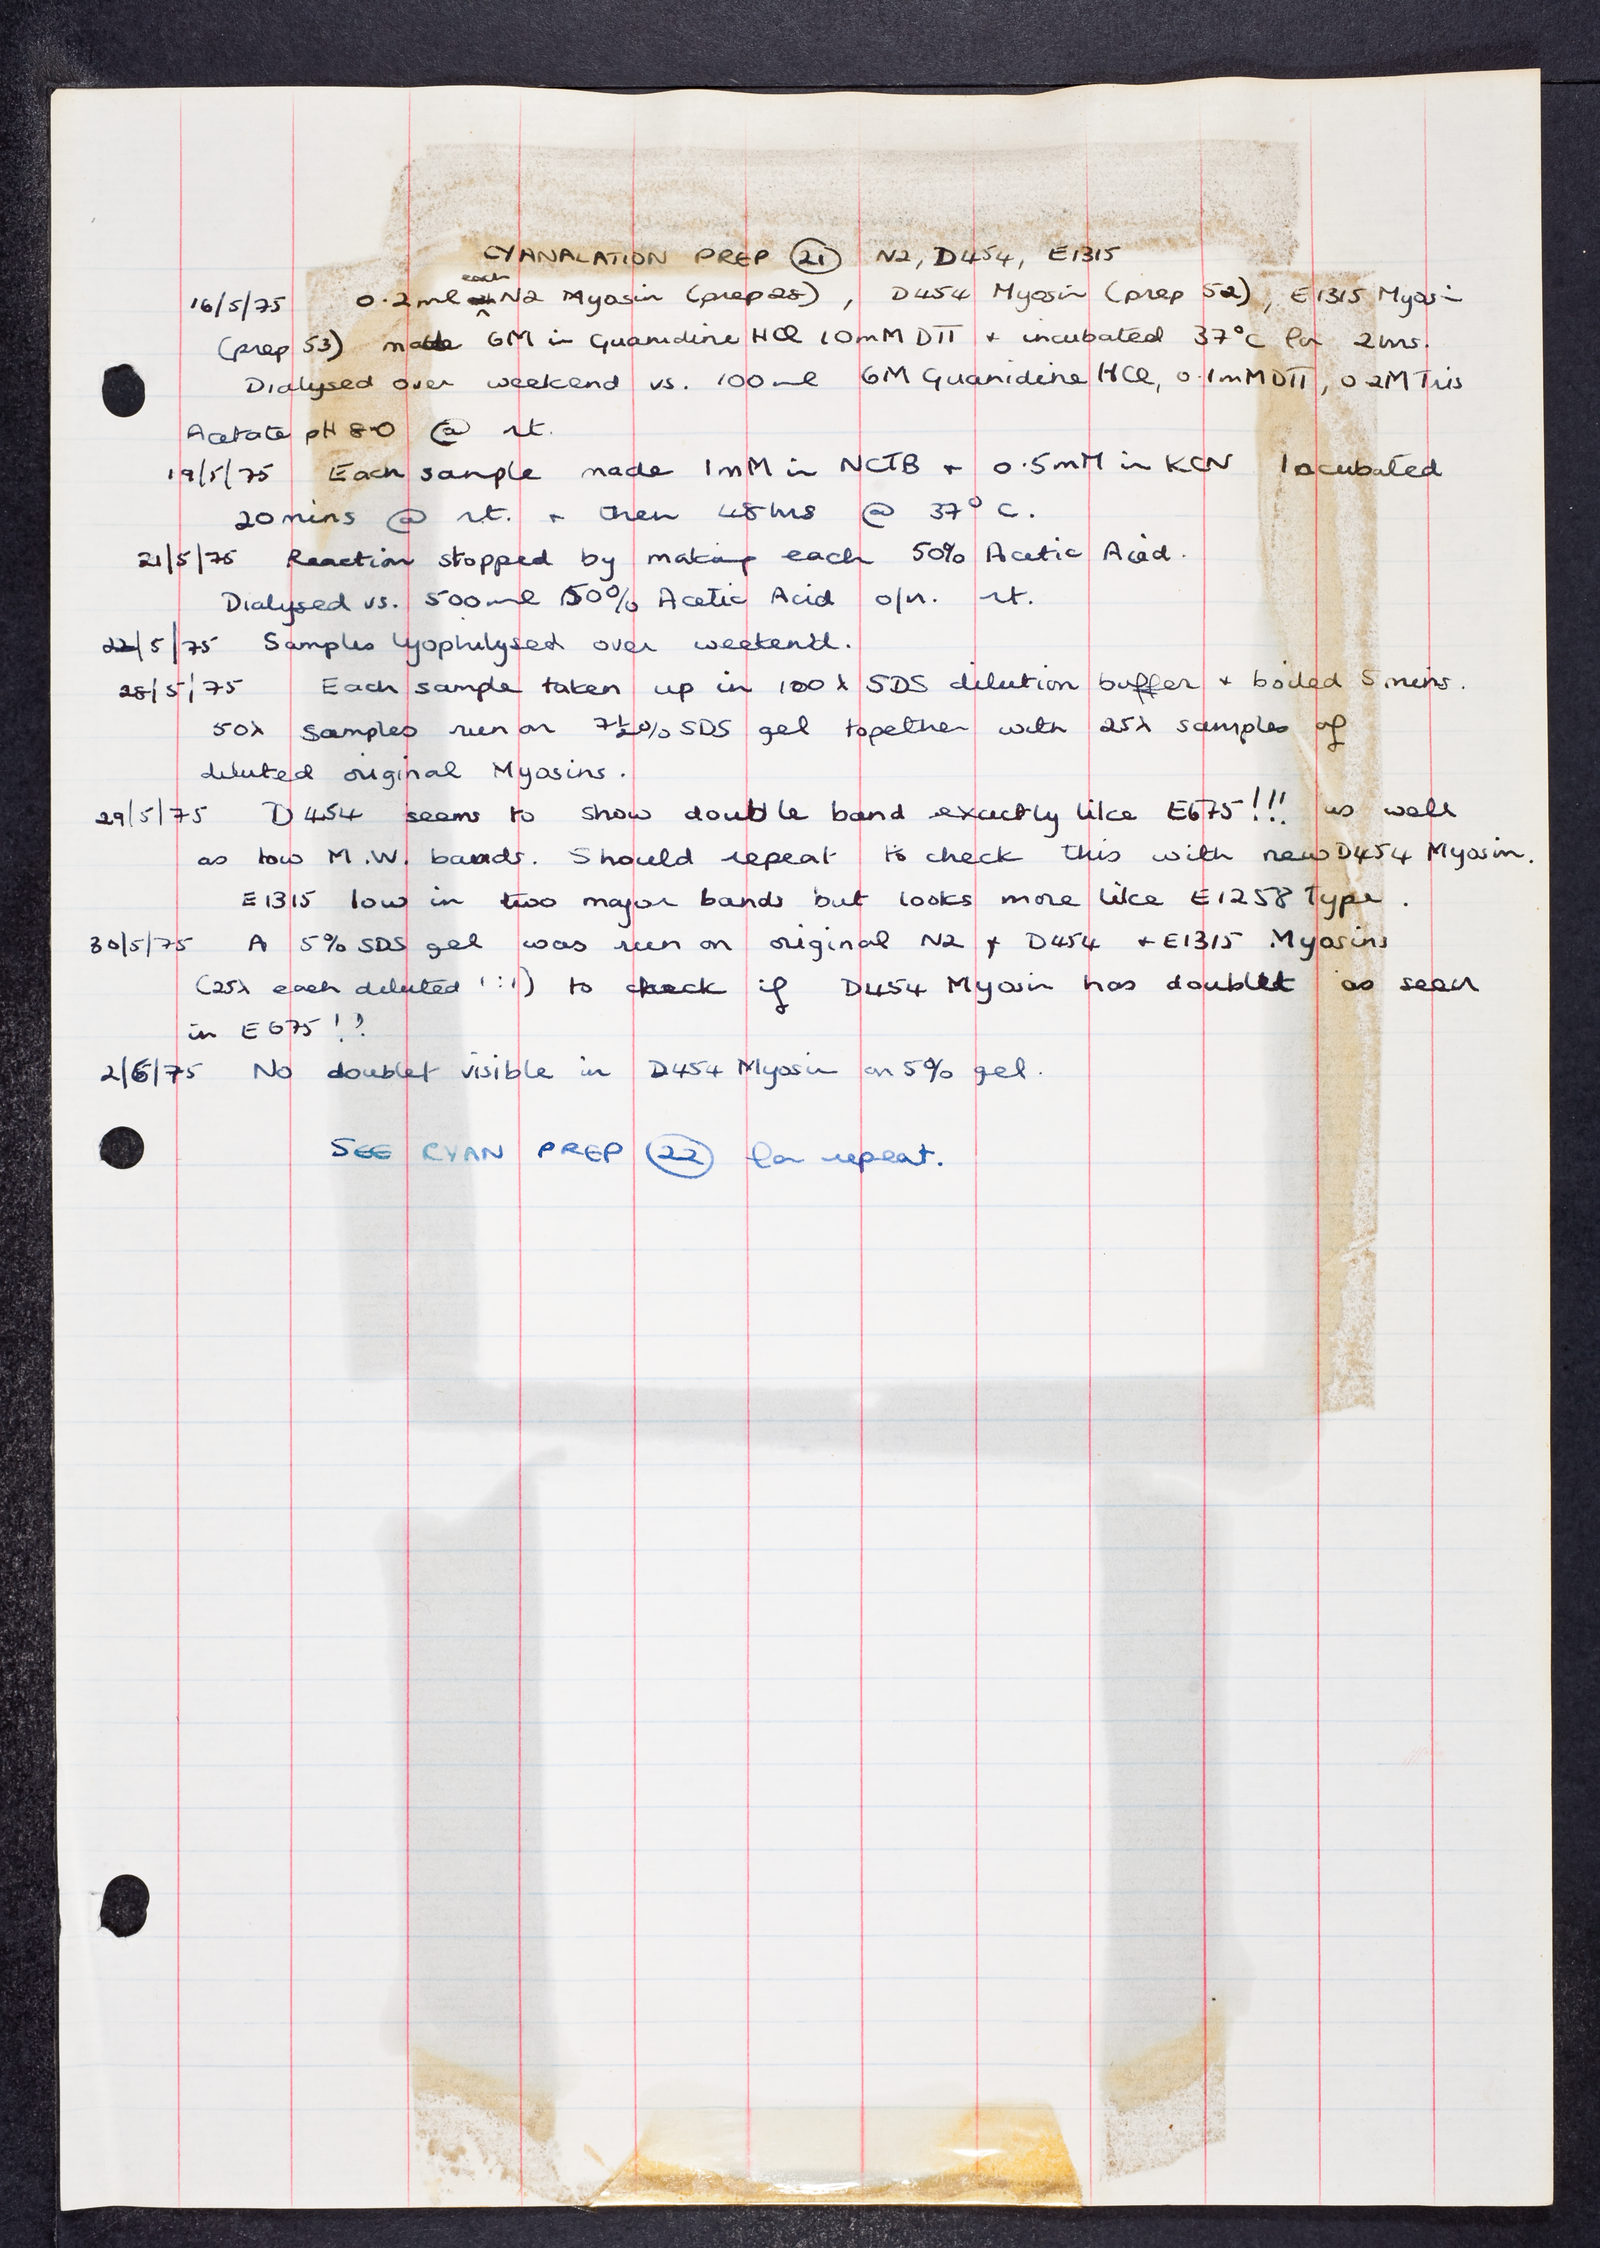 CYANALATION PREP 21 N2, D454, E1315
16/5/75 0.2ml each N2 Myosin (prep 28), D454 Myosin (prep 52), E1315 Myosin
(prep 53) made 6M in Guanidine HCl 10mM DTT + incubated 37°C for 2hrs.
Dialysed over weekend vs. 100ml 6M Guanidine HCl, 0.1mM DTT, 0.2M Tris
Acetate pH 8.0 @ rt.
19/5/75 Each sample made 1mM in NCTB + 0.5mM in KCN Incubated
20mins @ rt. + then 48hrs @ 37°C.
21/5/75 Reaction stopped by making each 50% Acetic Acid.
Dialysed vs. 500ml 50% Acetic Acid o/n. rt.
22/5/75 Samples lyophilysed over weekend.
28/5/75 Each sample taken up in 100λ SDS dilution buffer + boiled 5mins.
50λ samples run on 7½% SDS gel together with 25λ samples of
diluted original Myosins.
29/5/75 D454 seems to show double band exactly like E675!!! as well
as low M.W. bands. Should repeat to check this with new D454 Myosin.
E1315 low in two major bands but looks more like E1258 Type.
30/5/75 A 5% SDS gel was run on original N2 + D454 + E1315 Myosins
(25λ each diluted 1:1) to check if D454 Myosin has doublet as seen
in E675!?
2/6/75 No doublet visible in D454 Myosin on 5% gel.
SEE CYAN PREP 22 for repeat.